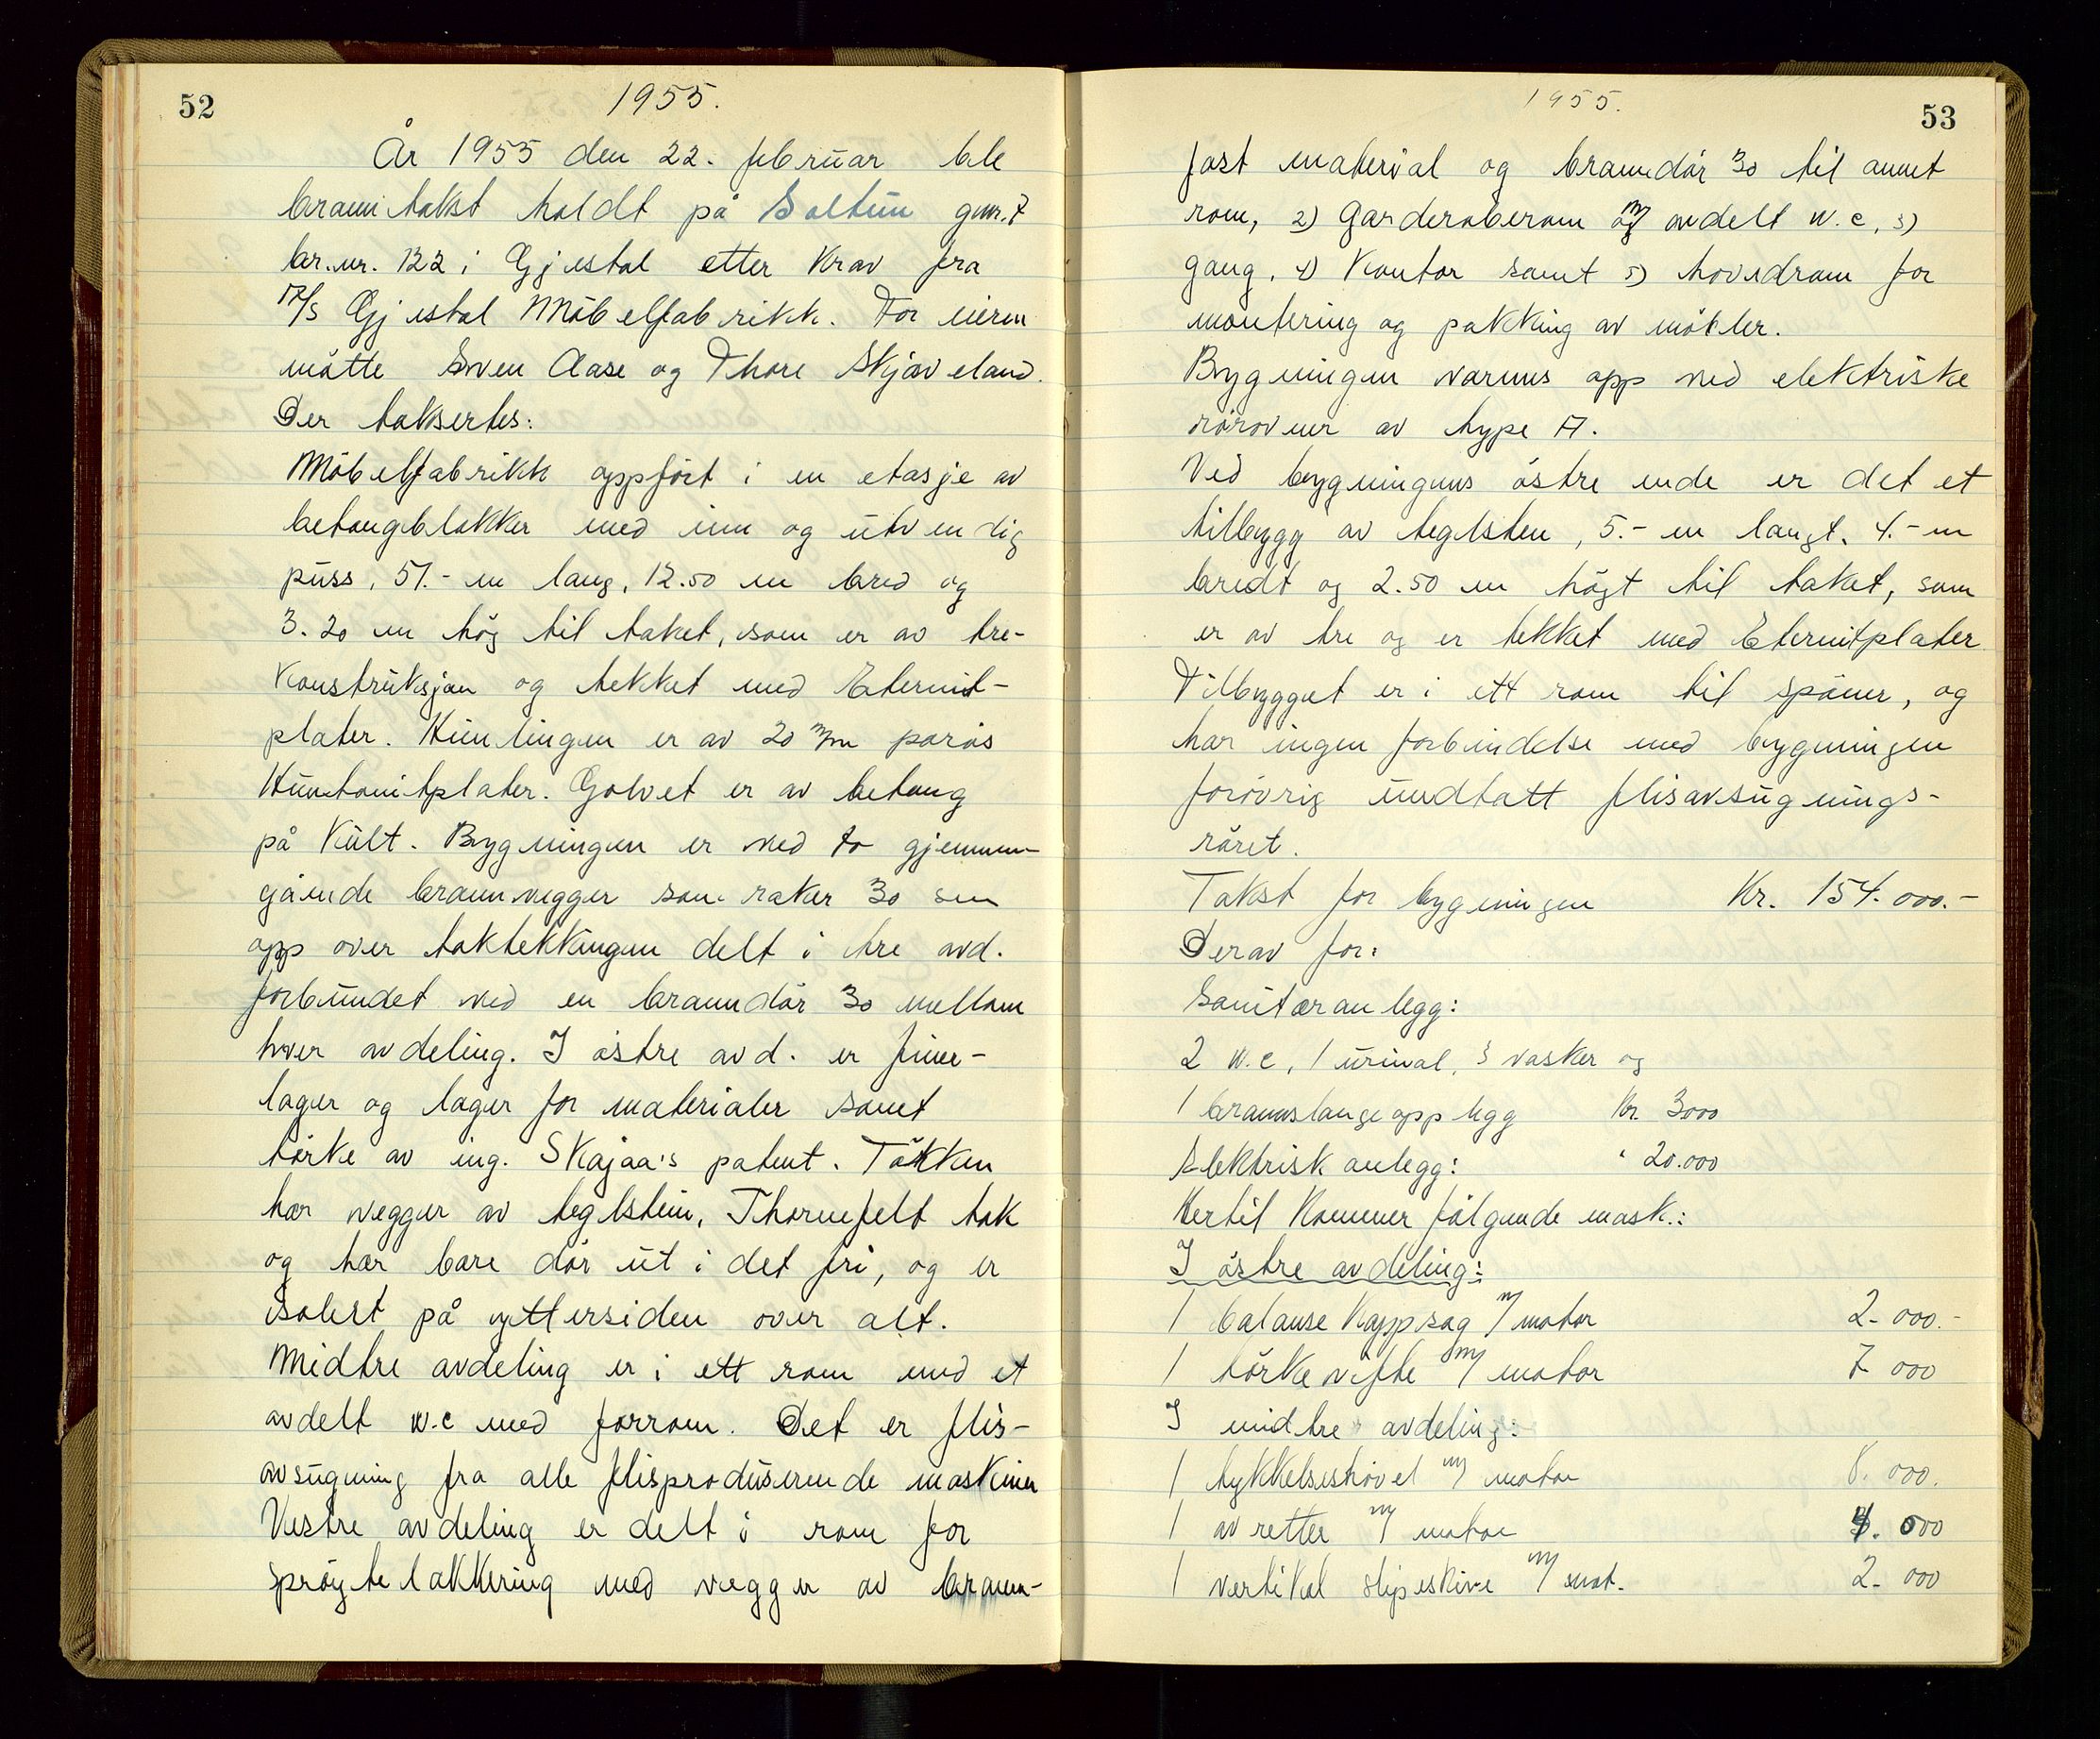 52
1955.
År 1955 den 22. februar ble
branntakst holdt på Soltun gnr. 7
br.nr. 122 i Gjestal etter krav fra
A/S Gjestal Möbelfabrikk. For eieren
mötte Sven Aase og Thore Skjæveland.
Der taksertes:
Möbelfabrikk oppfört i en etasje av
betongblokker med inn og utvendig
puss, 51.- m lang, 12.50 m bred og
3.20 m hög til taket, som er av tre-
konstruksjon og tekket med Eternit-
plater. Himlingen er av 20 m/m porös
Huntonitplater. Golvet er av betong
på kult. Bygningen er ved to gjennom-
gående brannvegger som raker 30 cm
opp over taktekkingen delt i tre avd.
forbundet ved en branndör 30 mellom
hver avdeling. I östre avd. er finer-
lager og lager for materialer samt
törke av ing. Skajaa's patent. Törken
har vegger av teglstein, Thermofelt tak
og har bare dör ut i det fri, og er
isolert på yttersiden over alt.
Midtre avdeling er i ett rom med et
avdelt w.c med forrom. Det er flis-
avsugning fra alle flisproduserende maskiner
Vestre avdeling er delt i rom for
spröytelakkering med vegger av brann-
1955.
53
fast material og branndör 30 til annet
rom, 2) Garderoberom m/ avdelt w.c, 3)
gang, 4) Kontor samt 5) hovedrom for
montering og pakking av möbler.
Bygningen varmes opp ved elektriske
rörovner av type A.
Ved bygningens östre ende er det et
tilbygg av teglsten, 5.- m langt, 4.- m
bredt og 2.50 m högt til taket, som
er av tre og er tekket med Eternitplater
Tilbygget er i ett rom til spåner, og
har ingen forbindelse med bygningen
forövrig undtatt flisavsugnings-
röret.
Takst for bygningen Kr. 154.000.-
Derav for:
Sanitæranlegg:
2 w.c, 1 urinal, 3 vasker og
1 brannslangeopplegg Kr. 3000
Elektrisk anlegg: " 20.000
Hertil kommer fölgende mask.:
I östre avdeling:
1 balanse kappsag m/ motor 2.000.-
1 törkevifte m/ motor 7 000
I midtre avdeling:
1 tykkelseshövel m/ motor 8.000.
1 avretter m/ motor 4.000
1 vertikal slipeskive m/ mot. 2.000